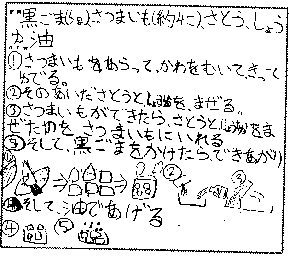 黒ごま(少量)、さつまいも(約4こ)、さとう、しょう
油
①さつまいもをあらって、かわをむいて、きって
ゆでる。
②そのあいださとうとしょう油を、まぜる。
③さつまいもができたら、さとうとしょう油をま
ぜたのを、さつまいもにいれる
⑤そして、黒ごまをかけたら、できあがり
① ② ③
④そして、油であげる
④ ⑤